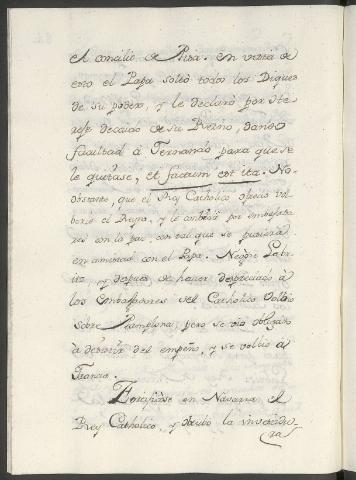 el concilio de Pisa. En vista de
esto el Papa soltó todos los Diques
de su poder, y le declaró por
decaido de su Reino, dando
facultad á Fernando para que se
le quitase, et factum est ita. No
obstante, que el Rey Catholico ofreció vol
berle el Reyno, y le por
con la paz, con tal que se pusiera
en amistad con el Papa. Labri
y despues de haver despreciado á
los Embaxadores del Catholico
sobre Pamplona, pero se vio obligado
á desistir del empeño, y se volvió á
Francia.
Fortificose en Navarra el
Rey Catholico, y recibió la investidu-
ra